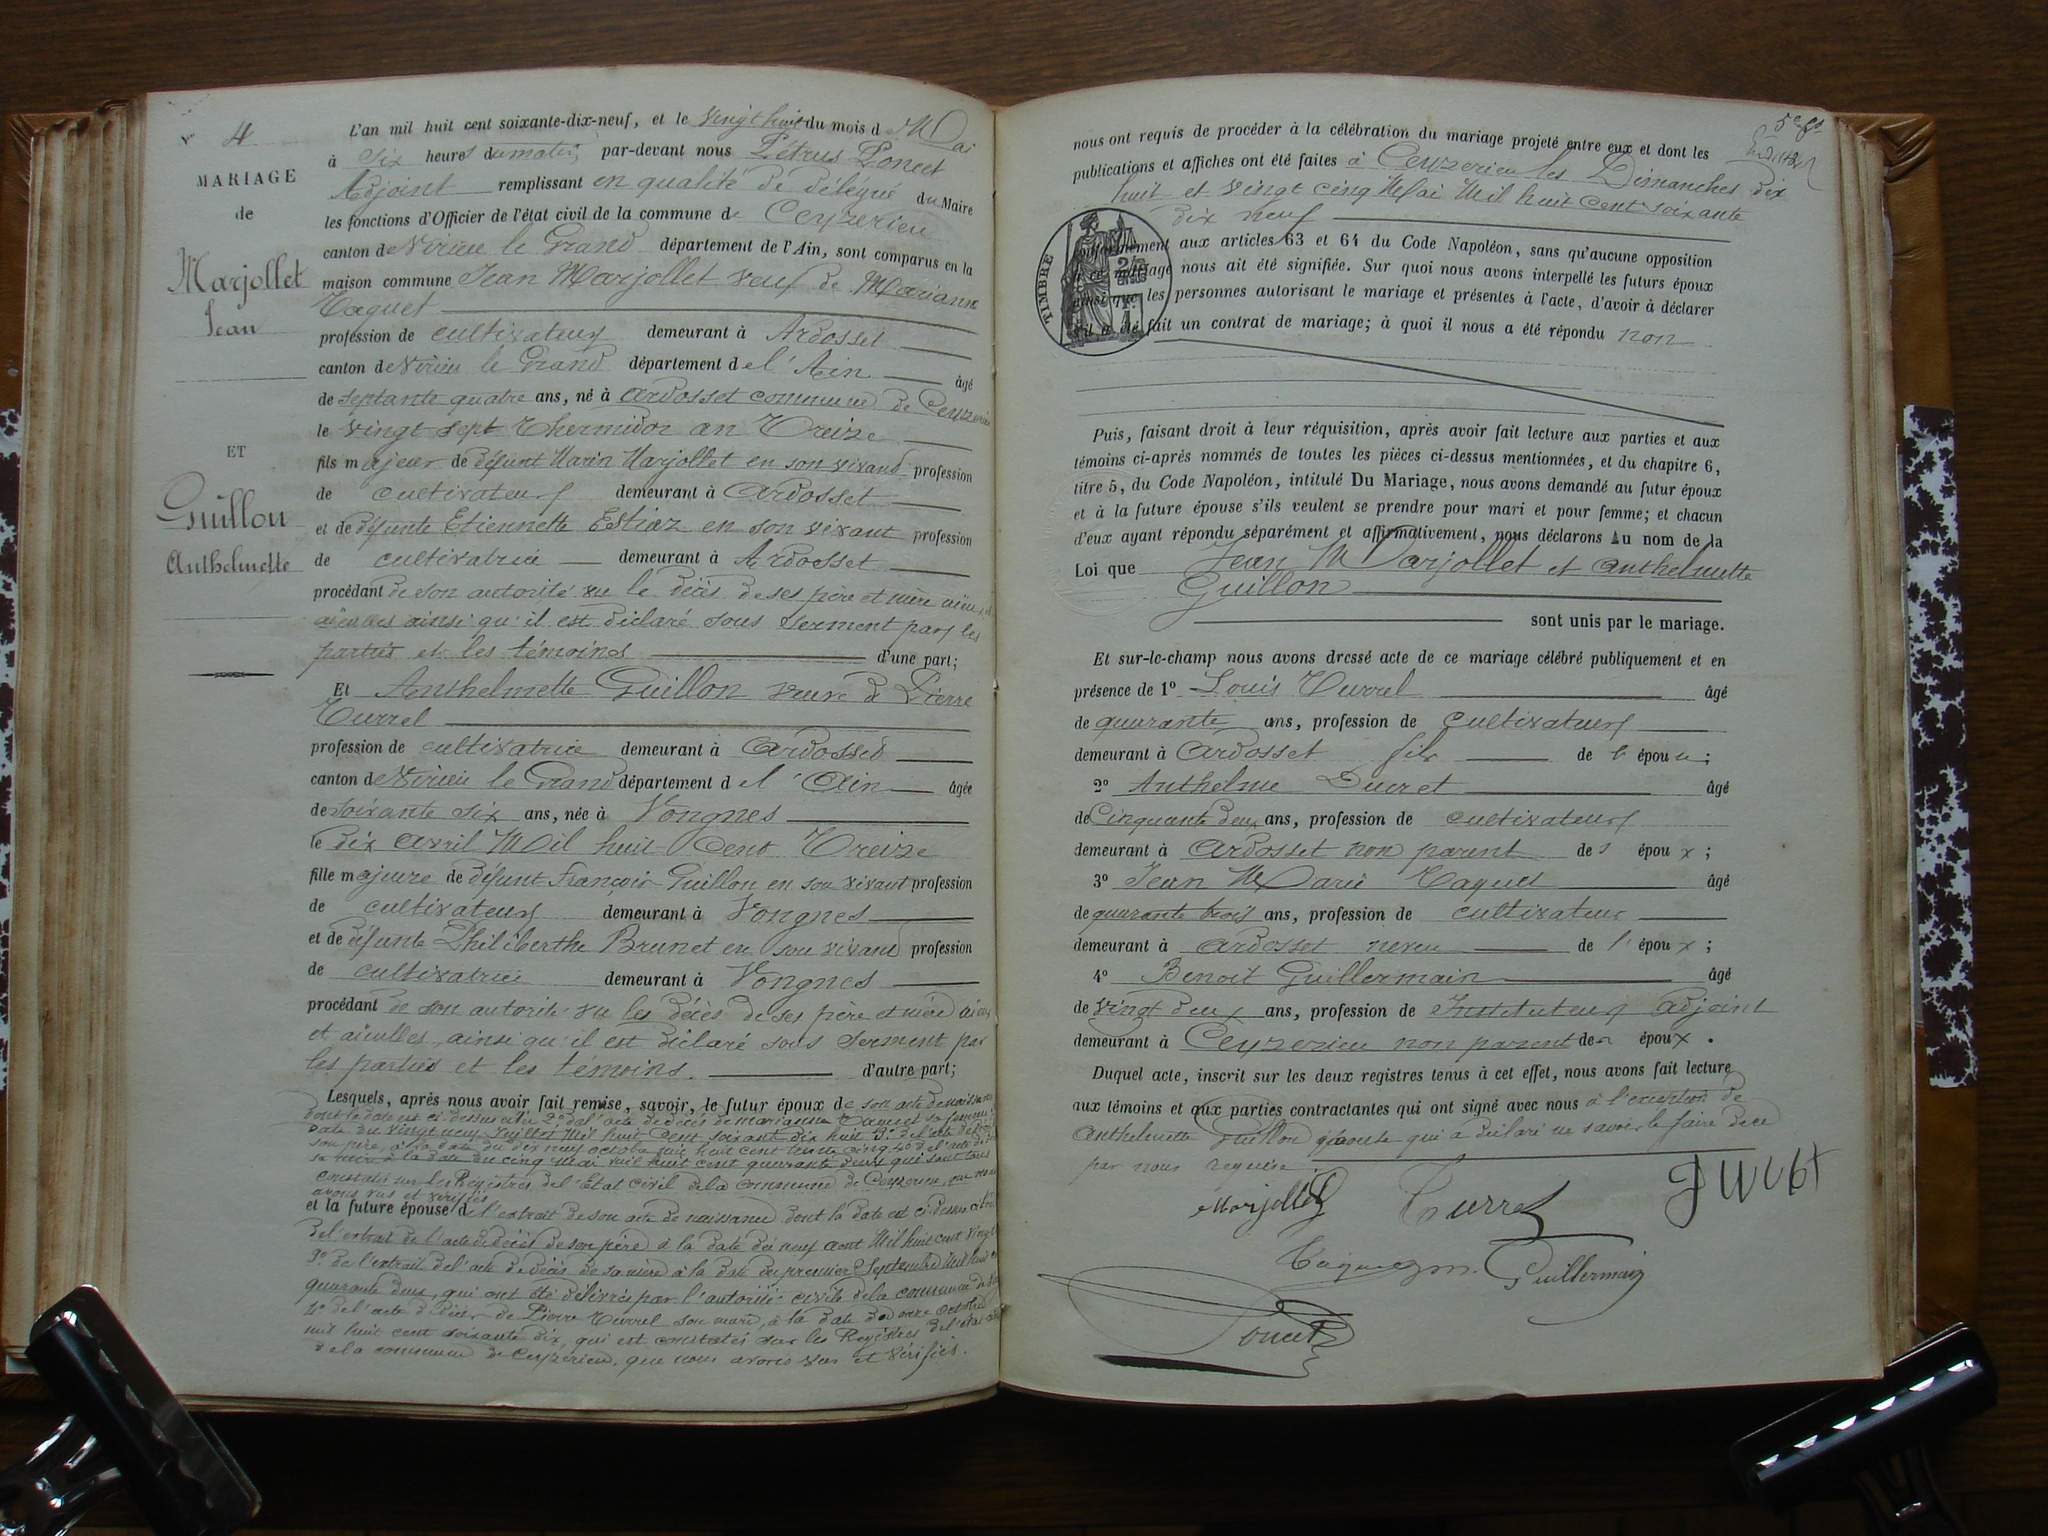 N° 4
MARIAGE
de
Marjollet
Jean
ET
Guillon
Anthelmette
L'an mil huit cent soixante-dix-neuf, et le vingt huit du mois de Mai
à six heures du matin, par-devant nous Pétrus Poncet
Adjoint remplissant en qualité de délégué du Maire
les fonctions d'Officier de l'état civil de la commune de Ceyzerieu
canton de Virieu le Grand département de l'Ain, sont comparus en la
maison commune Jean Marjollet veuf de Marianne
Taguet
profession de cultivateur demeurant à Ardosset
canton de Virieu le Grand département de l'Ain âgé
de septante quatre ans, né à Ardosset commune de Ceyzerieu
le vingt sept Thermidor an Treize
fils majeur de défunt Marin Marjollet en son vivant profession
de cultivateur demeurant à Ardosset
et de défunte Etiennette Estiaz en son vivant profession
de cultivatrice demeurant à Ardosset
procédant de son autorité vu le décès de ses père et mère
ainsi qu'il est déclaré sous serment par les
parties et les témoins d'une part;
Et Anthelmette Guillon veuve de Pierre
Turrel
profession de cultivatrice demeurant à Ardosset
canton de Virieu le Grand département de l'Ain âgée
de soixante six ans, née à Vongnes
le dix avril Mil huit Cent Treize
fille majeure de défunt François Guillon en son vivant profession
de cultivateur demeurant à Vongnes
et de défunte Philiberthe Brunet en son vivant profession
de cultivatrice demeurant à Vongnes
procédant de son autorité vu les décès de ses père et mère aieux
et aieulles, ainsi qu'il est déclaré sous serment par
les parties et les témoins. d'autre part;
Lesquels, après nous avoir fait remise, savoir, le futur époux de son acte de naissance
dont la date est ci-dessus 2° de l'acte de décès de Marianne Taguet sa femme
date du vingt neuf Juillet mil huit cent soixant dix huit 3° de l'acte de décès
son père, à la date du dix neuf octobre mil huit cent trente cinq 4° de l'acte de
sa mère à la date du cinq mai mil huit cent quarante deux qui sont tous
constatés sur les Registres de l'Etat civil de la commune de Ceyzerieu, que nous
avons vus et vérifiés
et la future épouse de l'extrait de son acte de naissance dont la date est ci-dessus
de l'extrait de l'acte de décès de son père à la date du neuf août Mil huit cent vingt
3° de l'extrait de l'acte de décès de sa mère à la date du premier Septembre Mil huit
quarante deux, qui ont été délivrés par l'autorité civile de la commune de
4° de l'acte de décès de Pierre Turrel son mari, à la date du onze octobre
mil huit cent soixante dix, qui est constatés sur les Registres de l'état
de la commune de Ceyzerieu, que nous avons vus et vérifiés.
nous ont requis de procéder à la célébration du mariage projeté entre eux et dont les
publications et affiches ont été faites à Ceyzerieu les Dimanches dix
huit et vingt cinq Mai Mil huit cent soixante
dix neuf
TIMBRE
conformément aux articles 63 et 64 du Code Napoléon, sans qu'aucune opposition
à ce mariage nous ait été signifiée. Sur quoi nous avons interpellé les futurs époux
ainsi que les personnes autorisant le mariage et présentes à l'acte, d'avoir à déclarer
s'il a été fait un contrat de mariage; à quoi il nous a été répondu non
Puis, faisant droit à leur réquisition, après avoir fait lecture aux parties et aux
témoins ci-après nommés de toutes les pièces ci-dessus mentionnées, et du chapitre 6,
titre 5, du Code Napoléon, intitulé Du Mariage, nous avons demandé au futur époux
et à la future épouse s'ils veulent se prendre pour mari et pour femme; et chacun
d'eux ayant répondu séparément et affirmativement, nous déclarons Au nom de la
Loi que Jean Marjollet et Anthelmette
Guillon
sont unis par le mariage.
Et sur-le-champ nous avons dressé acte de ce mariage célébré publiquement et en
présence de 1° Louis Turrel âgé
de quarante ans, profession de cultivateur
demeurant à Ardosset fils de l'épouse;
2° Anthelme Ducret âgé
de Cinquante deux ans, profession de cultivateur
demeurant à Ardosset non parent des époux;
3° Jean Marie Taguet âgé
de quarante trois ans, profession de cultivateur
demeurant à Ardosset neveu de l'époux;
4° Benoit Guillermain âgé
de vingt deux ans, profession de Instituteur Adjoint
demeurant à Ceyzerieu non parent des époux.
Duquel acte, inscrit sur les deux registres tenus à cet effet, nous avons fait lecture
aux témoins et aux parties contractantes qui ont signé avec nous à l'exception de
Anthelmette Guillon épouse qui a déclaré ne savoir le faire de ce
par nous requise.
Marjollet Turrel
Guillermain
Poncet